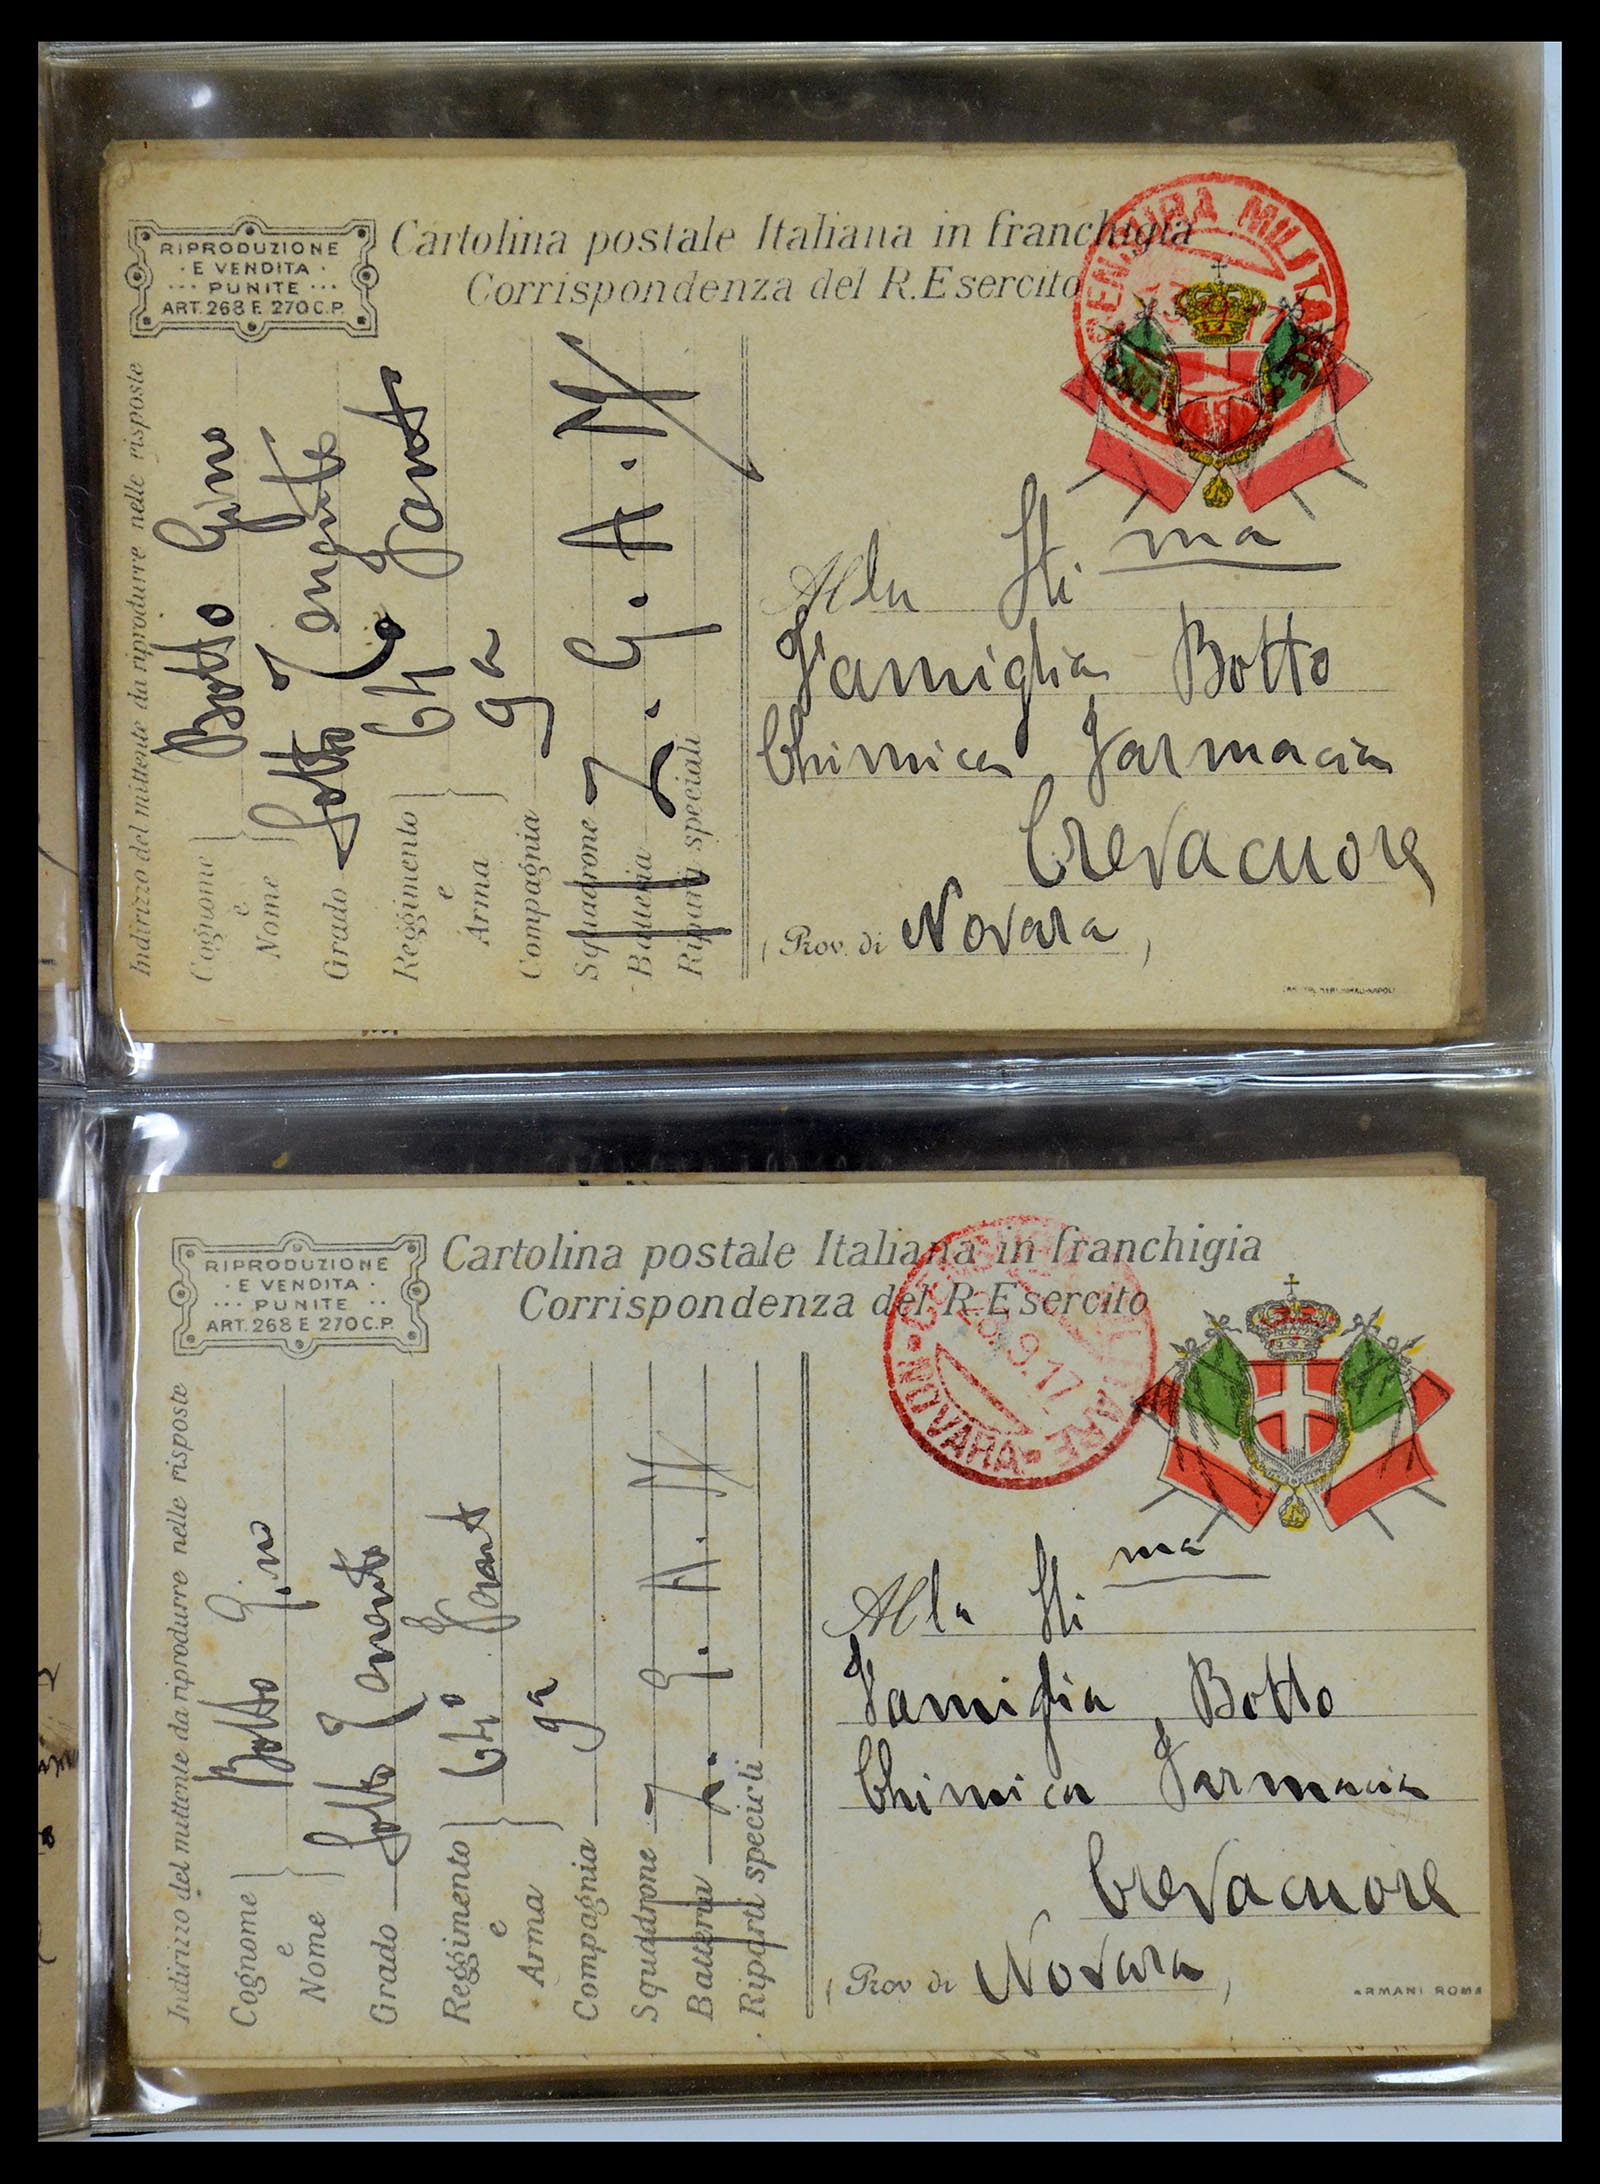 RIPRODUZIONE
· E VENDITA ·
··· PUNITE ···
ART. 268 E 270 C.P.
Cartolina postale Italiana in franchigia
Corrispondenza del R. Esercito
CENSURA MILITARE
Indirizzo del mittente da riprodurre nelle risposte
Cognome e Nome Botto Gino
Grado Sotto Tenente
Reggimento e Arma
Compagnia 9a
Squadrone
Batteria
Riparti speciali
Z. G. A. M
Alla Sti ma
Famiglia Botto
Chimica Farmacia
Crevacuore
(Prov. di Novara)
RIPRODUZIONE
· E VENDITA ·
··· PUNITE ··
ART. 268 E 270 C.P.
Cartolina postale Italiana in franchigia
Corrispondenza del R. Esercito
CENSURA MILITARE
28.9.17
· NOVARA ·
Indirizzo del mittente da riprodurre nelle risposte
Cognome e Nome Botto Gino
Grado Sotto Tenente
Reggimento e Arma
Compagnia 9a
Squadrone
Batteria
Riparti speciali
Z. G. A. M
Alla Sti ma
Famiglia Botto
Chimica Farmacia
Crevacuore
(Prov. di Novara)
ARMANI ROMA